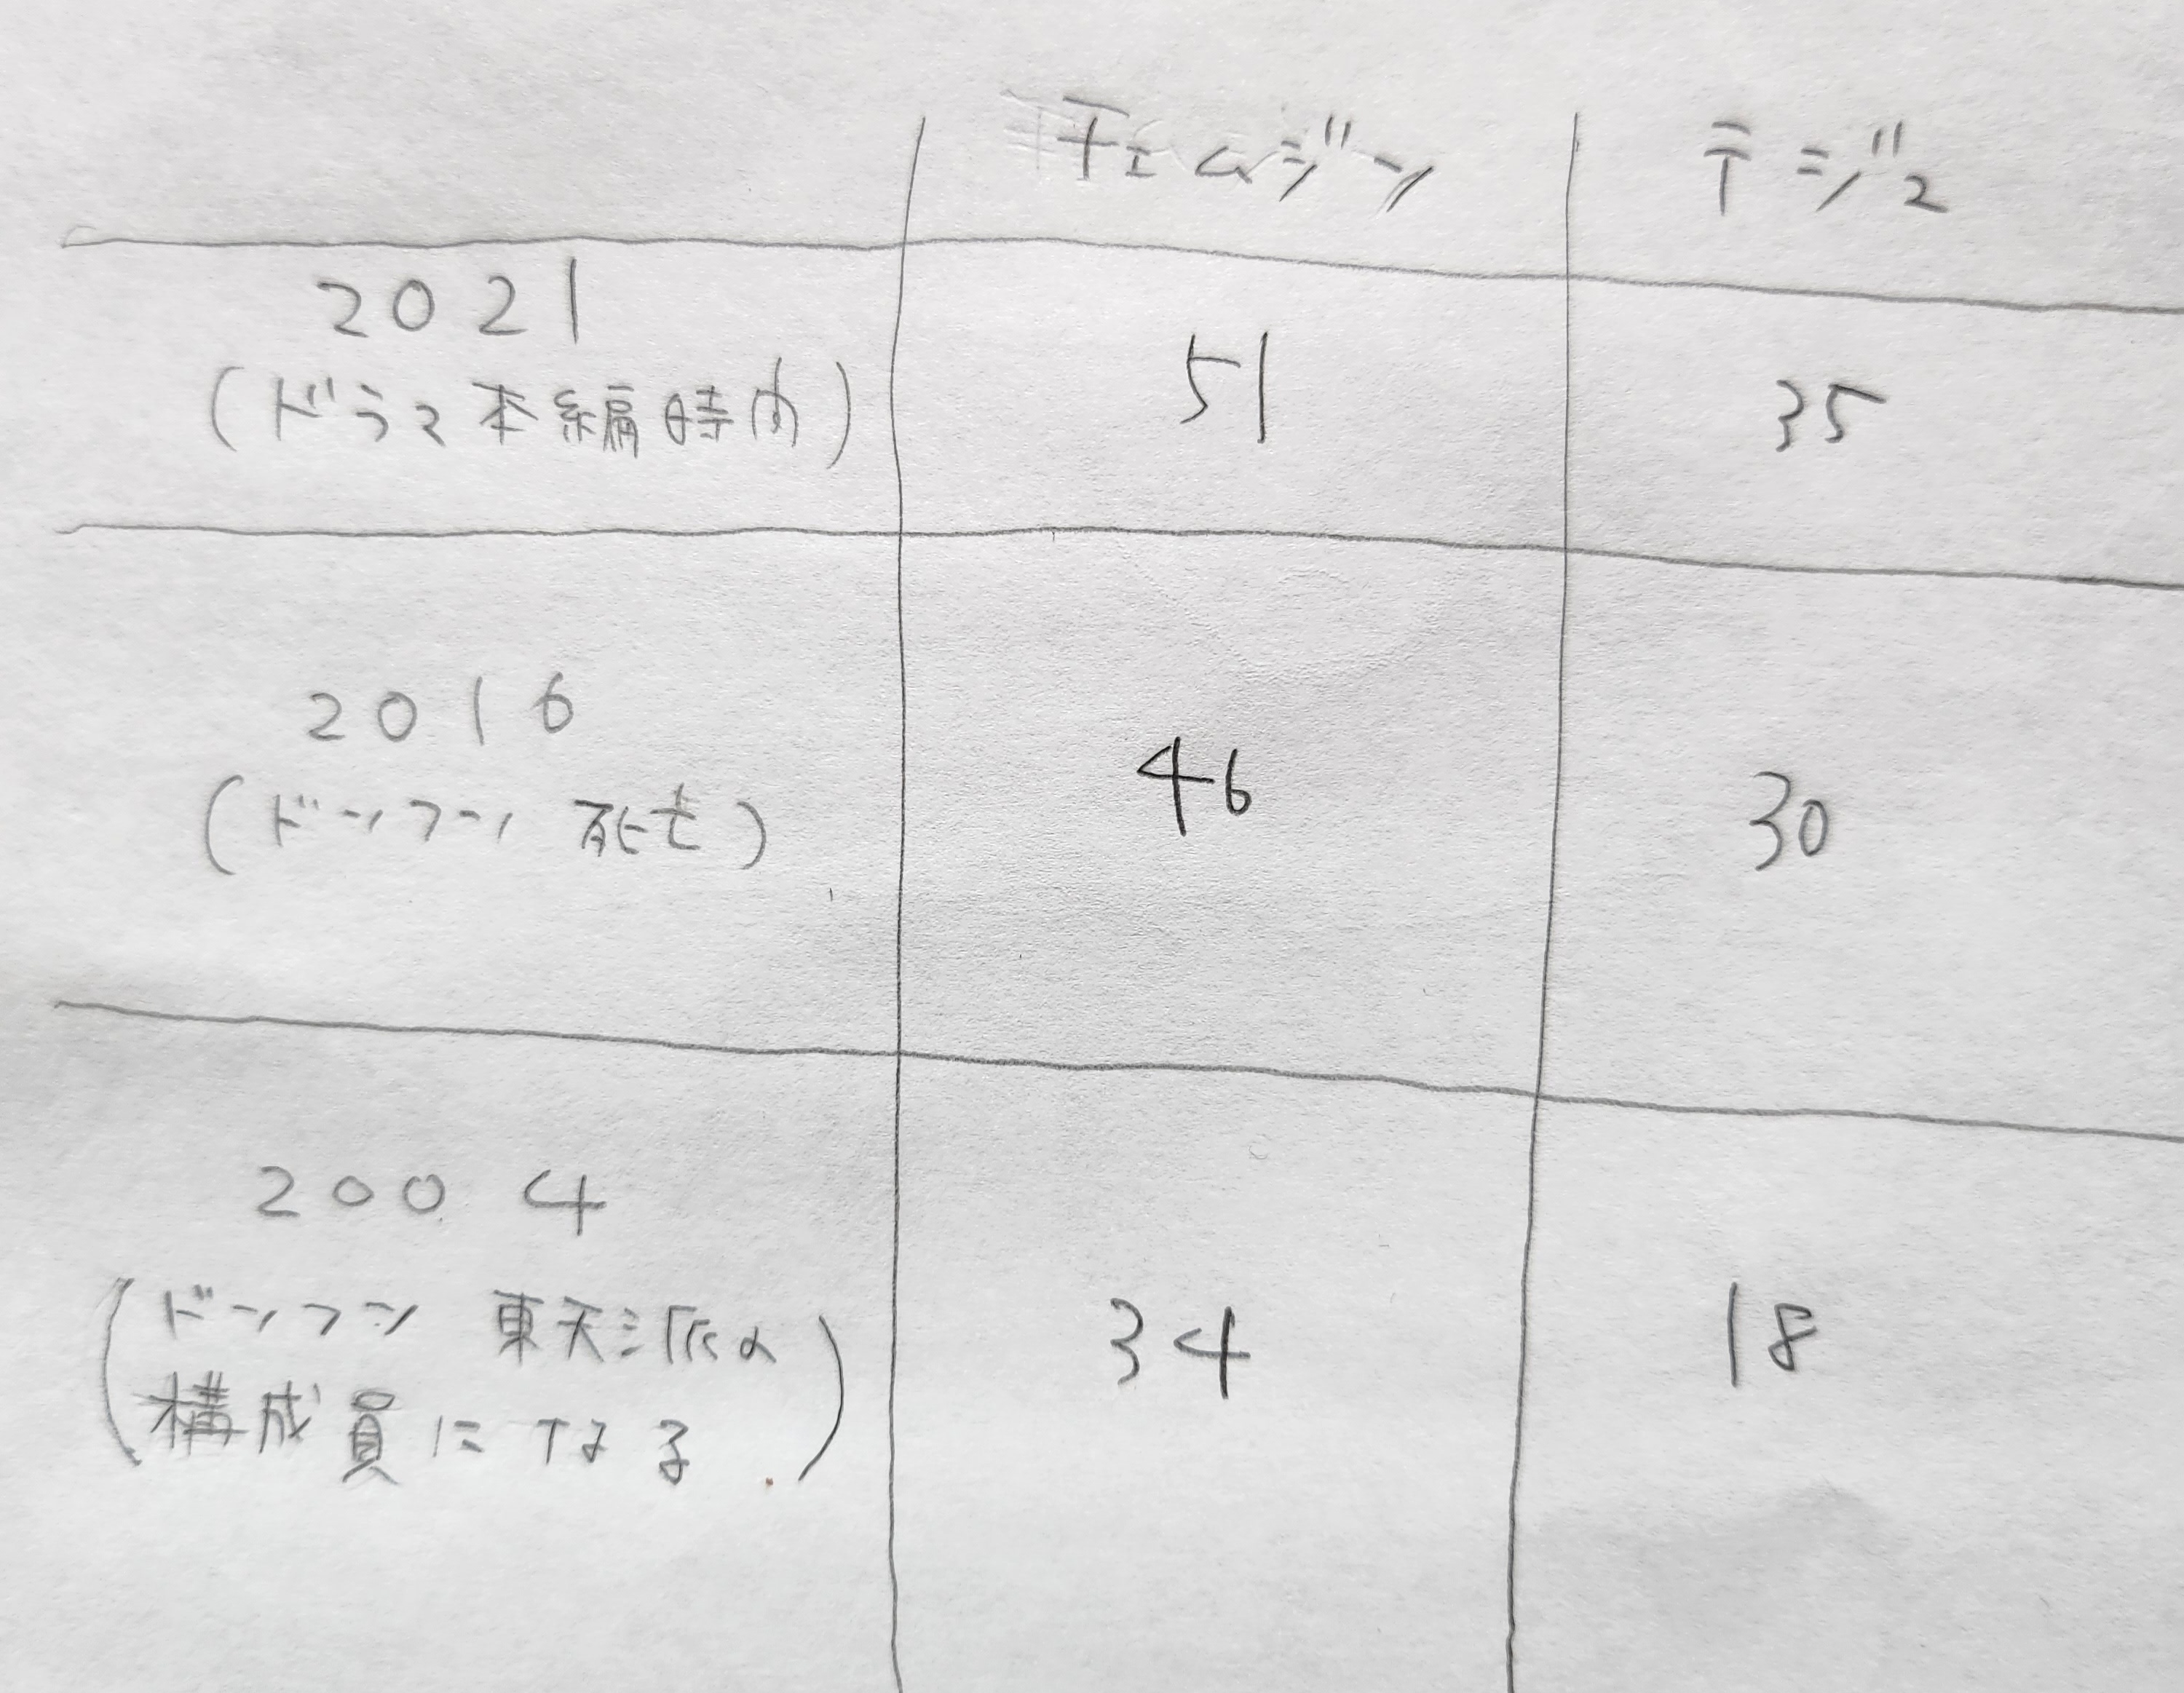 チェムジン テジュ
2021
(ドラマ本編時間) 51 35
2016 46 30
(ドンフン 死亡)
2004
(ドンフン 東天派の 34 18
構成員になる.)